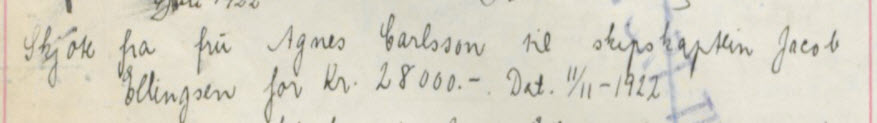 1922
Skjøte fra frü Agnes Carlsson til skipskaptein Jacob
Ellingsen for Kr. 28000.-. Dat. 11/11-1922